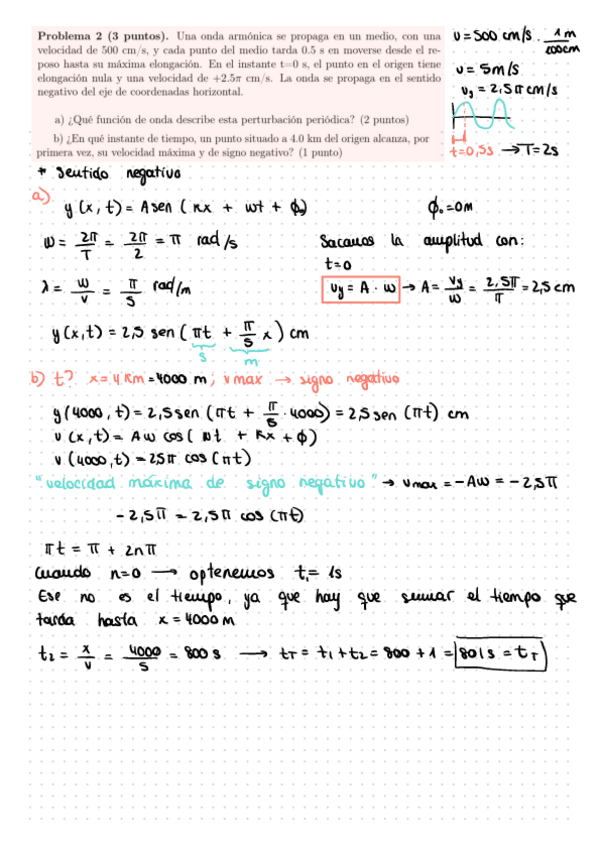 Problema 2 (3 puntos). Una onda armónica se propaga en un medio, con una
velocidad de 500 cm/s, y cada punto del medio tarda 0.5 s en moverse desde el re-
poso hasta su máxima elongación. En el instante t=0 s, el punto en el origen tiene
elongación nula y una velocidad de +2.5π cm/s. La onda se propaga en el sentido
negativo del eje de coordenadas horizontal.
a) ¿Qué función de onda describe esta perturbación periódica? (2 puntos)
b) ¿En qué instante de tiempo, un punto situado a 4.0 km del origen alcanza, por
primera vez, su velocidad máxima y de signo negativo? (1 punto)
v = 500 cm/s · 1m/100cm
v = 5m/s
vy = 2,5π cm/s
t=0,5s → T=2s
* Sentido negativo
a)
y (x, t) = A sen ( kx + wt + ϕ0) ϕ0 = 0 m
w = 2π/T = 2π/2 = π rad/s Sacamos la amplitud con:
t=0
λ = w/v = π/5 rad/m vy = A · w → A = vy/w = 2,5π/π = 2,5 cm
y(x,t) = 2,5 sen ( πt + π/5 x ) cm
s m
b) t? x = 4 km = 4000 m ; v max → signo negativo
y(4000, t) = 2,5 sen (πt + π/5 · 4000) = 2,5 sen (πt) cm
v (x,t) = Aw cos( wt + kx + ϕ)
v (4000,t) = 25π cos (πt)
"velocidad máxima de signo negativo" → vmax = -Aw = -2,5π
-2,5π = 2,5π cos (πt)
πt = π + 2nπ
Cuando n=0 → optenemos t1 = 1s
Ese no es el tiempo, ya que hay que sumar el tiempo que
tarda hasta x = 4000 m
t2 = x/v = 4000/5 = 800 s → tT = t1 + t2 = 800 + 1 = 801 s = tT